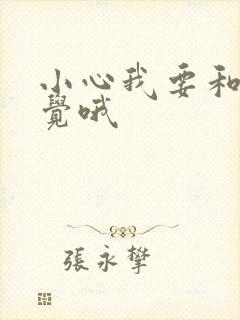 小心我要和
覺哦
張永攀